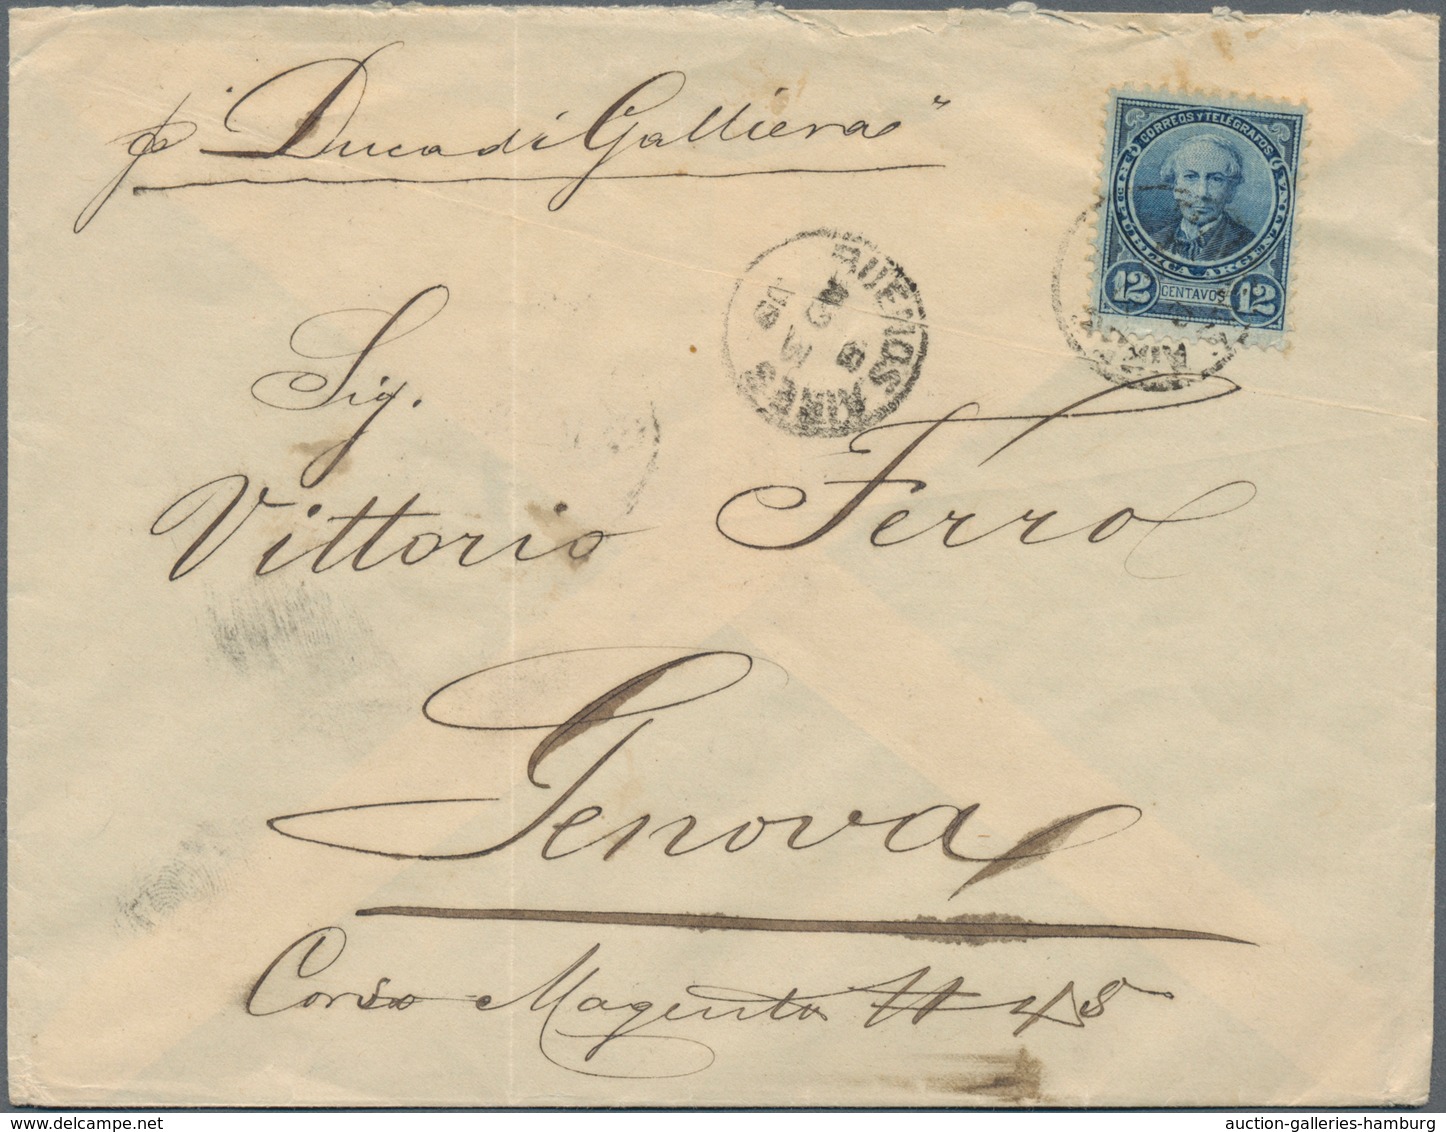 p "Duca di Galliera"
CORREOS Y TELÉGRAFOS
REPÚBLICA ARGENTINA
12 CENTAVOS 12
BUENOS AIRES
Sig.
Vittorio Ferro
Genova
Corso Magenta N 48
auction-galleries-hamburg